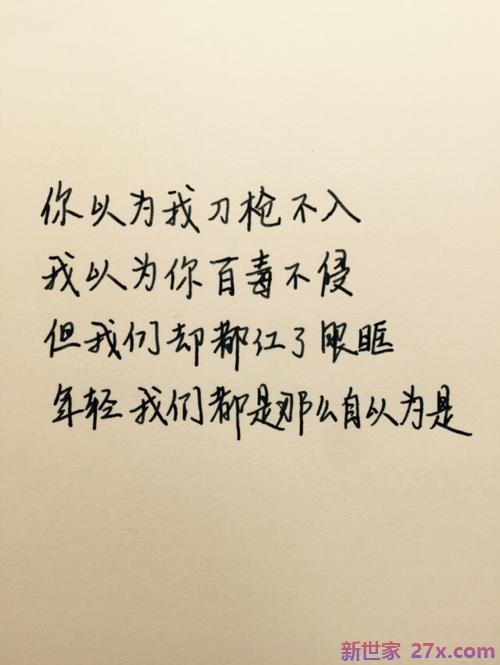 你以为我刀枪不入
我以为你百毒不侵
但我们却都红了眼眶
年轻我们都是那么自以为是
新世家 27x.com